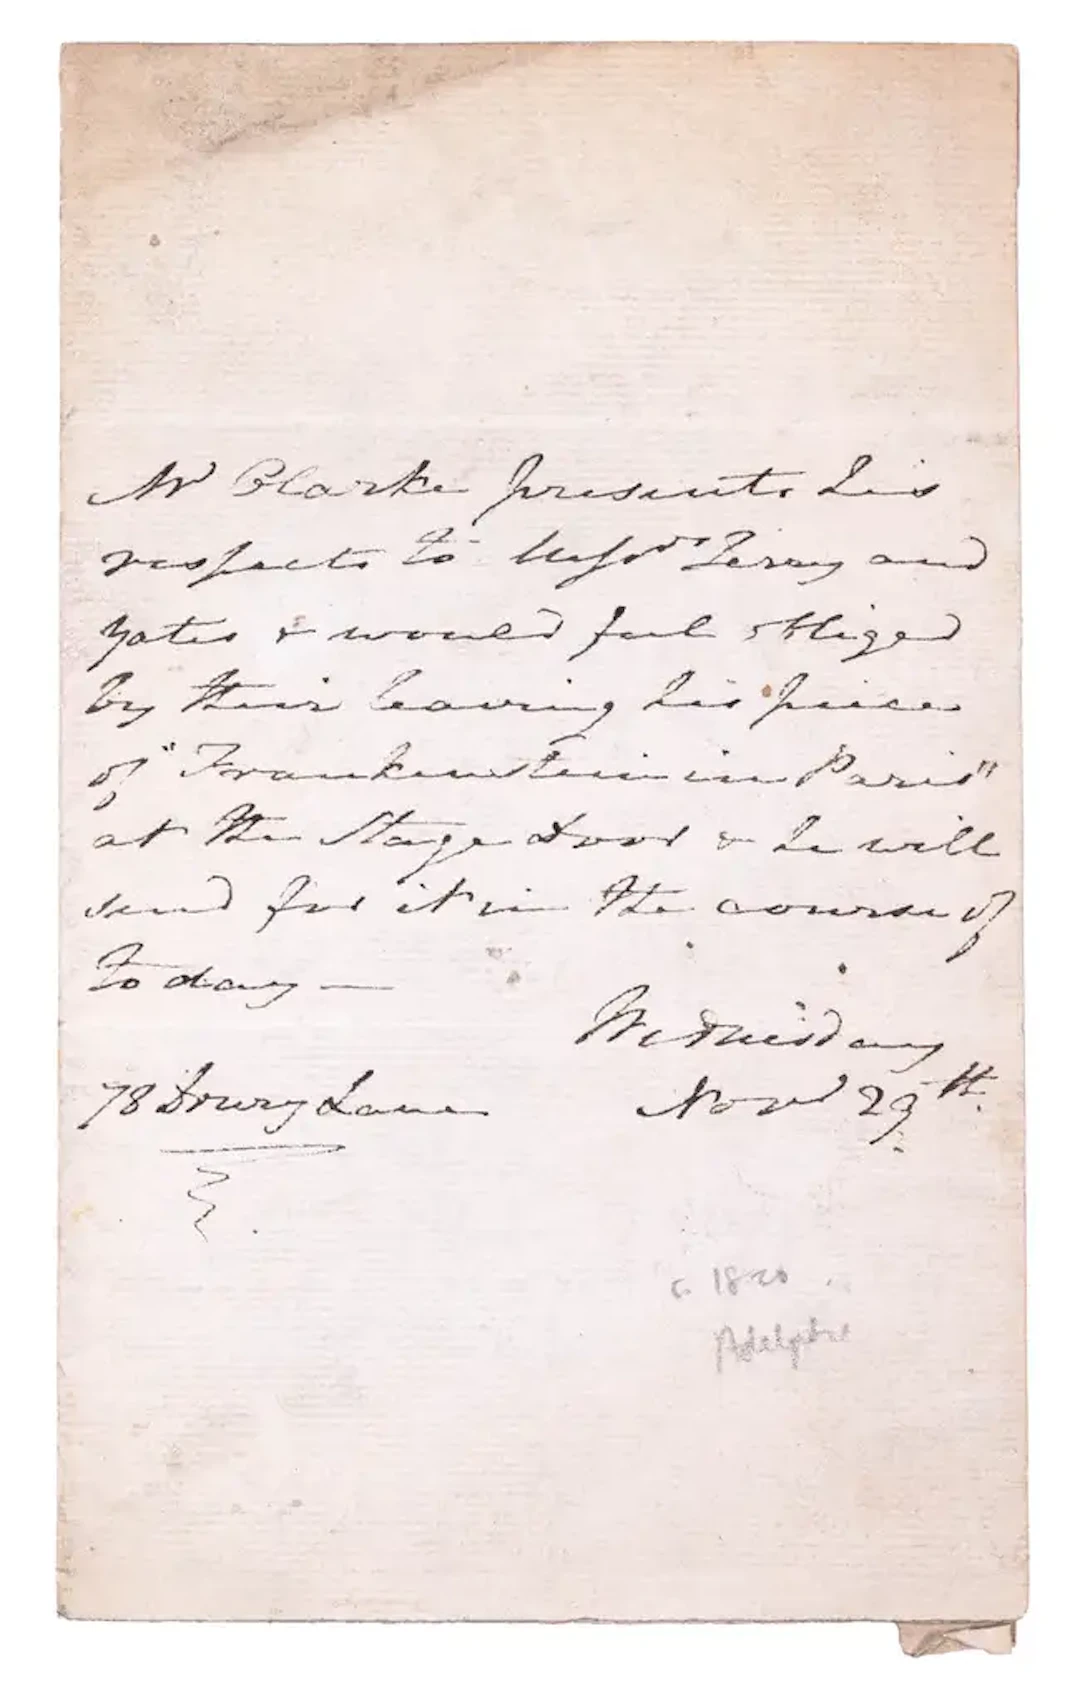 Mr Clarke presents his
respects to Messrs Terry and
Yates & would feel obliged
by their leaving his piece
of "Frankenstein in Paris"
at the Stage Door & he will
send for it in the course of
to day —
Wednesday
78 Drury Lane Novr 29th.
c 1820
Adelphi